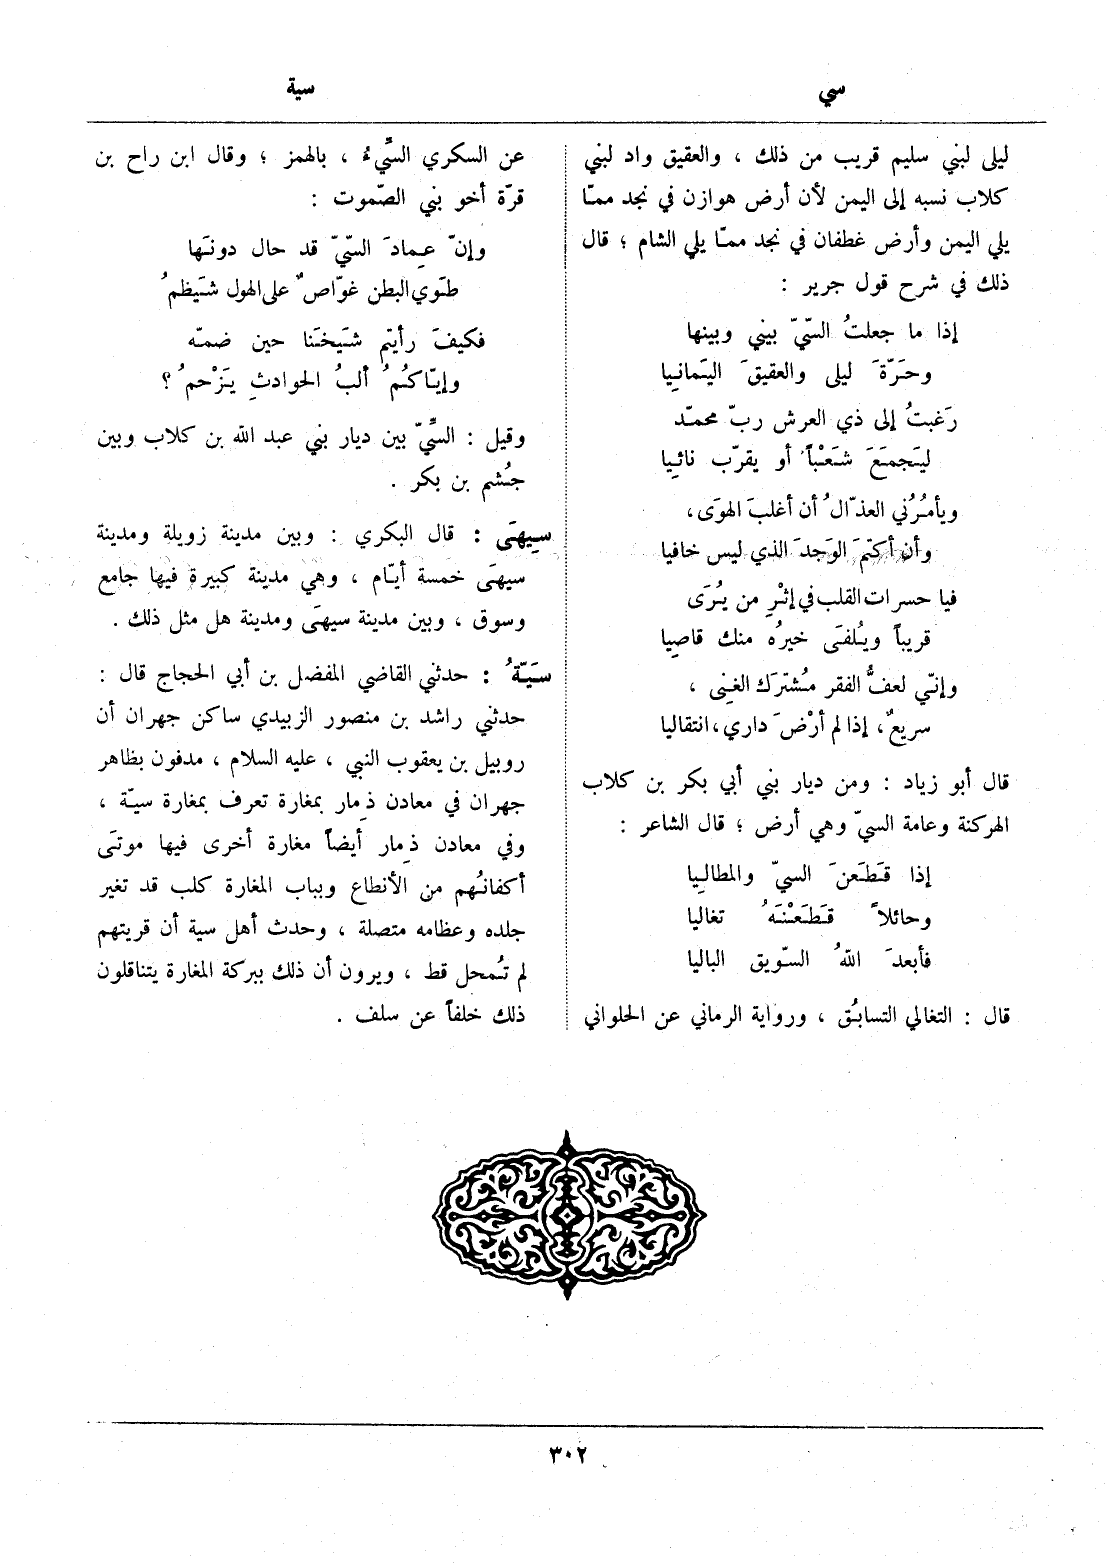 سي
سية
ليلى لبني سليم قريب من ذلك ، والعقيق واد لبني
كلاب نسبه إلى اليمن لأن أرض هوازن في نجد ممّا
يلي اليمن وأرض غطفان في نجد ممّا يلي الشام ؛ قال
ذلك في شرح قول جرير :
إذا ما جعلتُ السّيّ بيني وبينها
وحَرّةَ ليلى والعقيقَ اليَمانِيا
رَغبتُ إلى ذي العرش ربّ محمّد
ليَجمَعَ شَعْباً أو يقرّب نائِيا
ويأمُرُني العذّالُ أن أغلبَ الهوَى،
وأن أكتمَ الوَجدَ الذي ليس خافيا
فيا حسرات القلب في إثْرِ من يُرَى
قريباً ويُلفَى خيرُه منك قاصِيا
وإنّي لعفُّ الفقر مُشتَرَك الغِنى ،
سريعٌ، إذا لم أرْضَ داري، انتقاليا
قال أبو زياد : ومن ديار بني أبي بكر بن كلاب
الهركنة وعامة السيّ وهي أرض ؛ قال الشاعر :
إذا قَطَعنَ السيّ والمطالِيا
وحائلاً قَطَعْنَهُ تغاليا
فأبعدَ اللهُ السّويق الباليا
قال : التغالي التسابُق ، ورواية الرماني عن الحلواني
عن السكري السَّيءُ ، بالهمز ؛ وقال ابن راح بن
قرّة أخو بني الصّموت :
وإنّ عِمادَ السّيّ قد حال دونَها
طَوي البطن غوّاصٌ على الهول شَيظمُ
فكيفَ رأيتم شَيخَنا حين ضمّه
وإيّاكُمُ ألبُ الحوادثِ يَزْحمُ ؟
وقيل : السِّيّ بين ديار بني عبد الله بن كلاب وبين
جُشم بن بكر .
سِيهَى : قال البكري : وبين مدينة زويلة ومدينة
سيهَى خمسة أيّام ، وهي مدينة كبيرة فيها جامع
وسوق ، وبين مدينة سيهَى ومدينة هل مثل ذلك .
سَيّةُ : حدثني القاضي المفضل بن أبي الحجاج قال :
حدثني راشد بن منصور الزبيدي ساكن جهران أن
روبيل بن يعقوب النبي ، عليه السلام ، مدفون بظاهر
جهران في معادن ذمار بمغارة تعرف بمغارة سيّة ،
وفي معادن ذمار أيضاً مغارة أخرى فيها موتَى
أكفانُهم من الأنطاع وبباب المغارة كلب قد تغير
جلده وعظامه متصلة ، وحدث أهل سية أن قريتهم
لم تُمحل قط ، ويرون أن ذلك ببركة المغارة يتناقلون
ذلك خلفاً عن سلف .
٣٠٢